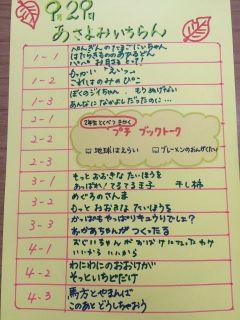 9月29日
あさよみいちらん
1-1
ぺんぎんのたまごにいちゃん
はたらきもののあひるどん
パパ、お月さまとって!
1-2
これはのみのぴこ
1-3
ぼくのジィちゃん もうぬげない
あんなになかよしだったのに…
2-1
2-2
2-3
2年生とくべつきかく
プチ ブックトーク
地球はえらい
ブレーメンのおんがくたい
3-1
もっとおおきな たいほうを
あっぱれ!てるてる王子 干し柿
3-2
めぐろのさんま
もっとおおきな たいほうを
3-3
かっぱもやっぱりキュウリでしょ?
おかあちゃんがつくったる
4-1
おじいちゃんがおばけになったわけ
いいから いいから
4-2
わにわにのおおけが
そっといちどだけ
4-3
馬方とやまんば
このあと どうしちゃおう